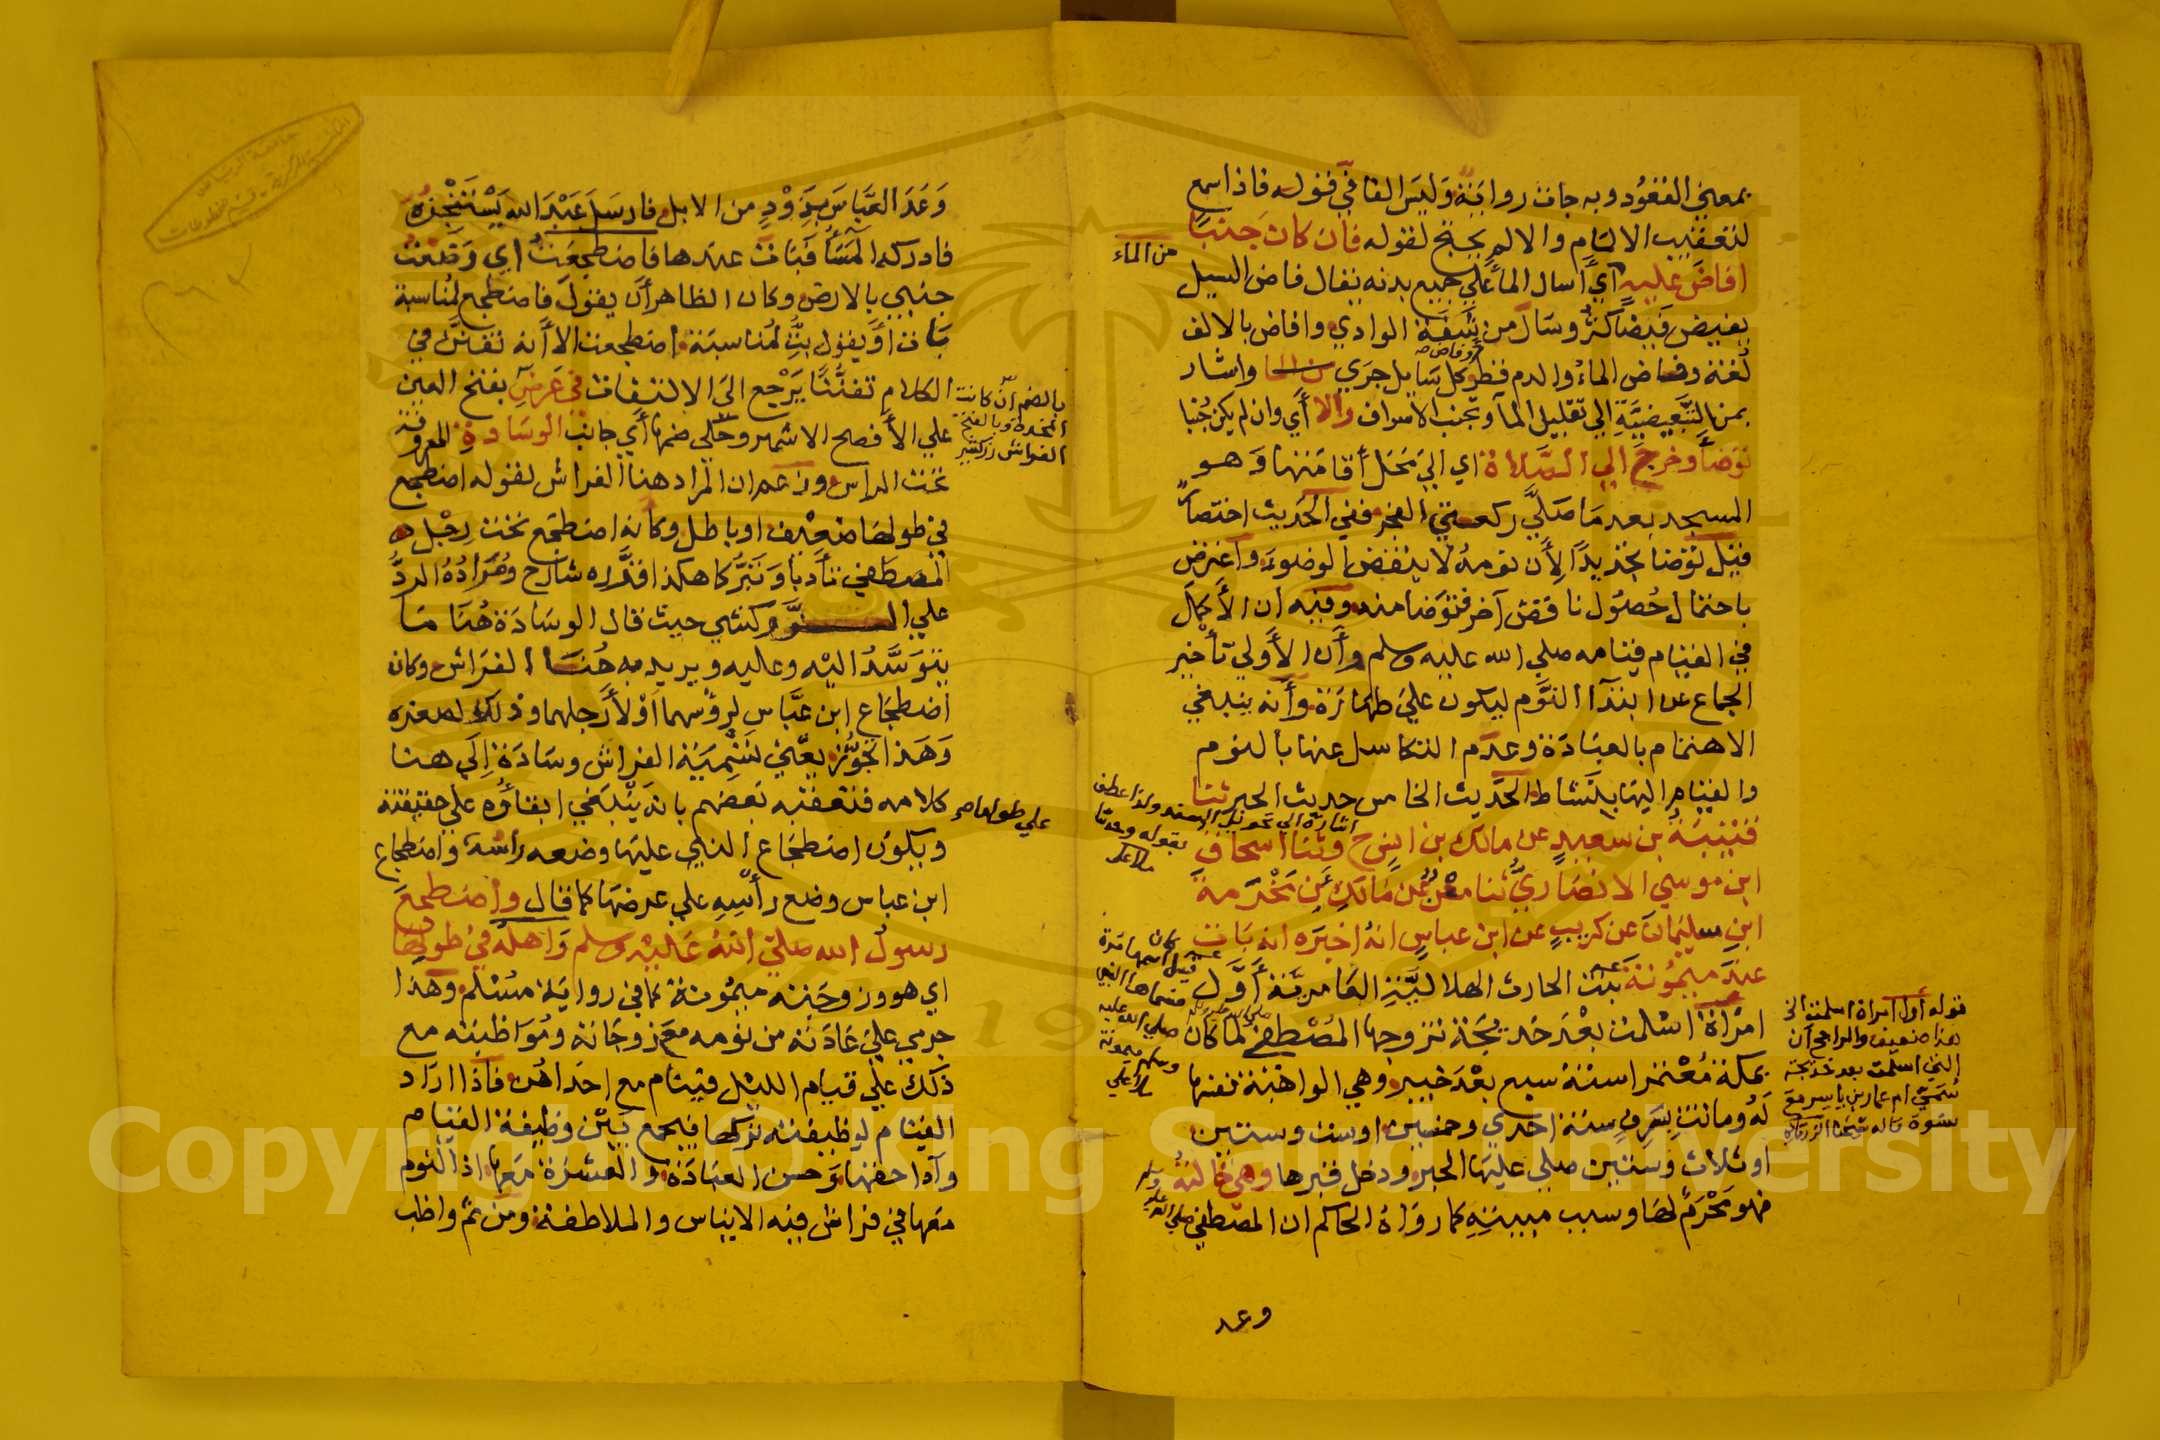 بمعني القعود وبه جات رواية وليس الفا في قوله فاذا سمع
لتعقيب الالمام والالم يحتج لقوله فان كان جنبا
افاض عليه اي اسال الما علي جميع بدنه يقال فاض السيل
يفيض فيضا كثر وسال من شفة الوادي وافاض بالالف
لغة وفاض الماء والدم قطر وكل سايل جري واشار
بمن التبعيضية الي تقليل الما وتجنب الاسراف والا اي وان لم يكن جنبا
توضأ وخرج الي الصلاة اي الي محل أقامتها وهو
المسجد بعد ما صلي ركعتي الفجر ففي الحديث اختصار
قيل توضا تجديدا لأن نومه لا ينقض الوضوء واعترض
باحتمال حصول ناقض آخر فتوضا منه وفيه ان الأكمل
في القيام قيامه صلي الله عليه وسلم وأن الأولي تأخير
الجماع عن ابتدآ النوم ليكون علي طهارة وأنه ينبغي
الاهتمام بالعبادة وعدم التكاسل عنها بالنوم
والقيام اليها بنشاط الحديث الخامس حديث الحبر ثنا
قتيبة بن سعيد عن مالك بن انس ح وثنا اسحاق
ابن موسي الانصاري ثنا معن عن مالك عن مخرمة
ابن سليمان عن كريب عن ابن عباس انه اخبره انه بات
عند ميمونة بنت الحارث الهلالية العامرية أول
امرأة اسلمت بعد خديجة تزوجها المصطفي لما كان
بمكة معتمرا سنة سبع بعد خيبر وهي الواهبة نفسها
له وماتت بسرف سنة احدي وخمسين اوست وستين
اوثلاث وستين صلي عليها الحبر ودخل قبرها وهي خالته
فهو محرم لها وسبب مبيته كما رواه الحاكم ان المصطفي صلي الله عليه وسلم
وعد
من الماء
وفاض صح
اشارة الي تحويل السند ولذا عطف
بقوله وحدثنا
ملا علي
كان اسمها برة
فسماها النبي
صلي الله عليه
وسلم ميمونة
ملا علي
قوله أول امراة اسلمت الخ
هذا ضعيف والراجح ان
التي اسلمت بعد خديجة
سمية ام عمار بن ياسر مع
نسوة قاله شيخنا الزرقاني
وعد العباس بذود من الابل فارسل عبد الله يستنجزه
فادركه المسا فبات عندها فاضطجعت اي وضعت
جنبي بالارض وكان الظاهر أن يقول فاضطجع لمناسبة
بات أو يقول بت لمناسبة اضطجعت الا أنه تفنن في
الكلام تفننا يرجع الي الالتفات في عرض بفتح العين
علي الأفصح الاشهر وحكي ضمها أي جانب الوسادة المعروفة
تحت الراس وزعم ان المراد هنا الفراش لقوله اضطجع
في طولها ضعيف او باطل وكأنه اضطجع تحت رجل
المصطفي تأدبا وتبركا هكذا قرره شارح ومراده الرد
علي الزركشي حيث قال الوسادة هنا ما
يتوسد اليه وعليه ويريد به هنا الفراش وكان
اضطجاع ابن عباس لرؤسهما أو لأرجلهما وذلك لصغره
وهذا تجوز يعني تسمية الفراش وسادة إلي هنا
كلامه فتعقبه بعضهم بانه ينبغي ابقاؤه علي حقيقته
ويكون اضطجاع النبي عليها وضعه رأسه واضطجاع
ابن عباس وضع رأسه علي عرضها كما قال واضطجع
رسول الله صلي الله عليه وسلم واهله في طولها
اي هو وزوجته ميمونة كما في رواية مسلم وهذا
جري علي عادته من نومه مع زوجاته ومواظبته مع
ذلك علي قيام الليل فينام مع احداهن فاذا اراد
القيام لوظيفته تركها فيجمع بين وظيفة القيام
وآدا حقها وحسن العبادة والعشرة معها اذ النوم
معها في فراش فيه الايناس والملاطفة ومن ثم واظب
بالضم ان كانت
المخدة وبالفتح
الفراش زركشي
علي طولها صح
Copyright © King Saud University